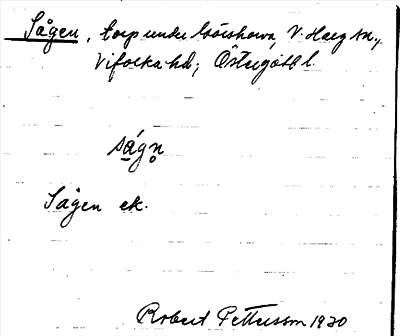 Sågen, torp under Götshorva, V. Harg sn.,
Vifolka hd; Östergötl l.
ságn̥
Sågen ek.
Robert Pettersson 1930